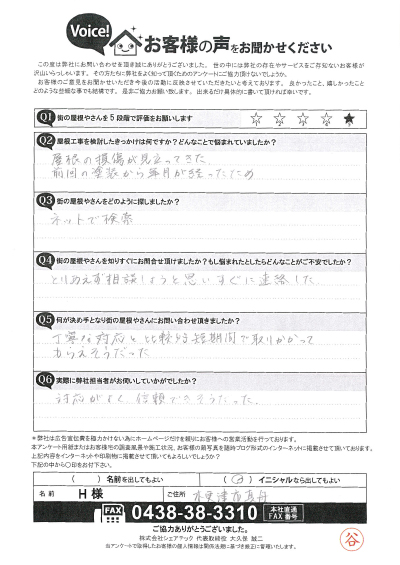 Voice!
お客様の声をお聞かせください
この度は弊社にお問い合わせを頂き誠にありがとうございました。世の中には弊社の存在やサービスをご存知ないお客様が
沢山いらっしゃいます。その方たちに弊社をよく知って頂くためのアンケートにご協力頂けないでしょうか。
お客様のご意見をお聞かせいただき今後の活動に反映させていただきたいと考えております。良かったこと、嬉しかったこと
どのような些細な事でも結構です。是非ご協力お願い致します。出来るだけ具体的に書いて頂ければ幸いです。
Q1 街の屋根やさんを5段階で評価をお願いします ☆ ☆ ☆ ☆ ★
Q2 屋根工事を検討したきっかけは何ですか？どんなことで悩まれていましたか？
屋根の損傷が見立ってきた
前回の塗装から年月が経ったため
Q3 街の屋根やさんをどのように探しましたか？
ネットで検索
Q4 街の屋根やさんを知りすぐにお問合せ頂けましたか？もし悩まれたとしたらどんなことがご不安でしたか？
とりあえず相談しようと思いすぐに連絡した
Q5 何が決め手となり街の屋根やさんにお問い合わせ頂きましたか？
丁寧な対応と比較的短期間で取りかかって
もらえそうだった
Q6 実際に弊社担当者がお伺いしていかがでしたか？
対応がよく、信頼できそうだった。
＊弊社は広告宣伝費を極力かけない為にホームページだけを頼りにお客様への営業活動を行っております。
本アンケート用紙またはお客様宅の調査風景や施工状況、お客様の顔写真を随時ブログ形式のインターネットに掲載させて頂いております。
上記内容をインターネットや印刷物に掲載させて頂いてもよろしいでしょうか？
下記の中から○印をお付下さい。
（ ）名前を出してもよい （○）イニシャルなら出してもよい
名前 H様 ご住所 木更津市真舟
FAX 0438-38-3310 本社直通 FAX番号
ご協力ありがとうございました。
株式会社シェアテック 代表取締役 大久保 誠二
※アンケートで取得したお客様の個人情報は関係法令に基づき厳正に管理いたします。
谷